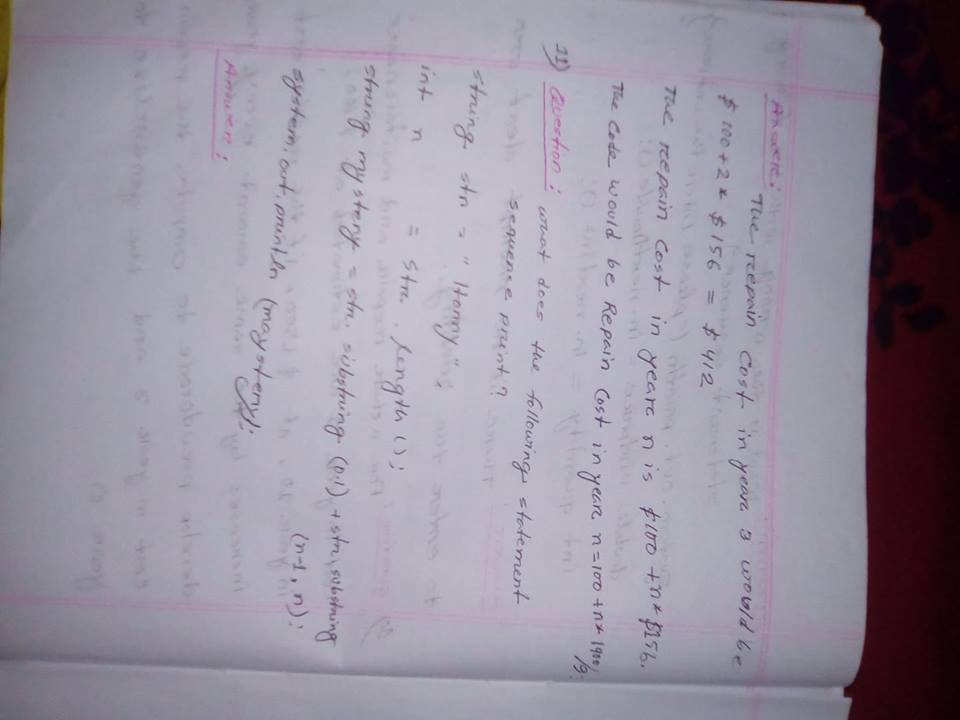 Answer:
The repair Cost in year 3 would be
$ 100 + 2 * $ 156 = $ 412
The repair Cost in year n is $100 + n * $156.
The code would be Repair Cost in year n = 100 + n * 1400/9;
11) Question: what does the following statement
sequence print?
string str = " Harry ";
int n = str. length ();
string mystery = str. substring (0.1) + str. substring
(n-1, n);
system. out. println (maystery);
Answer: